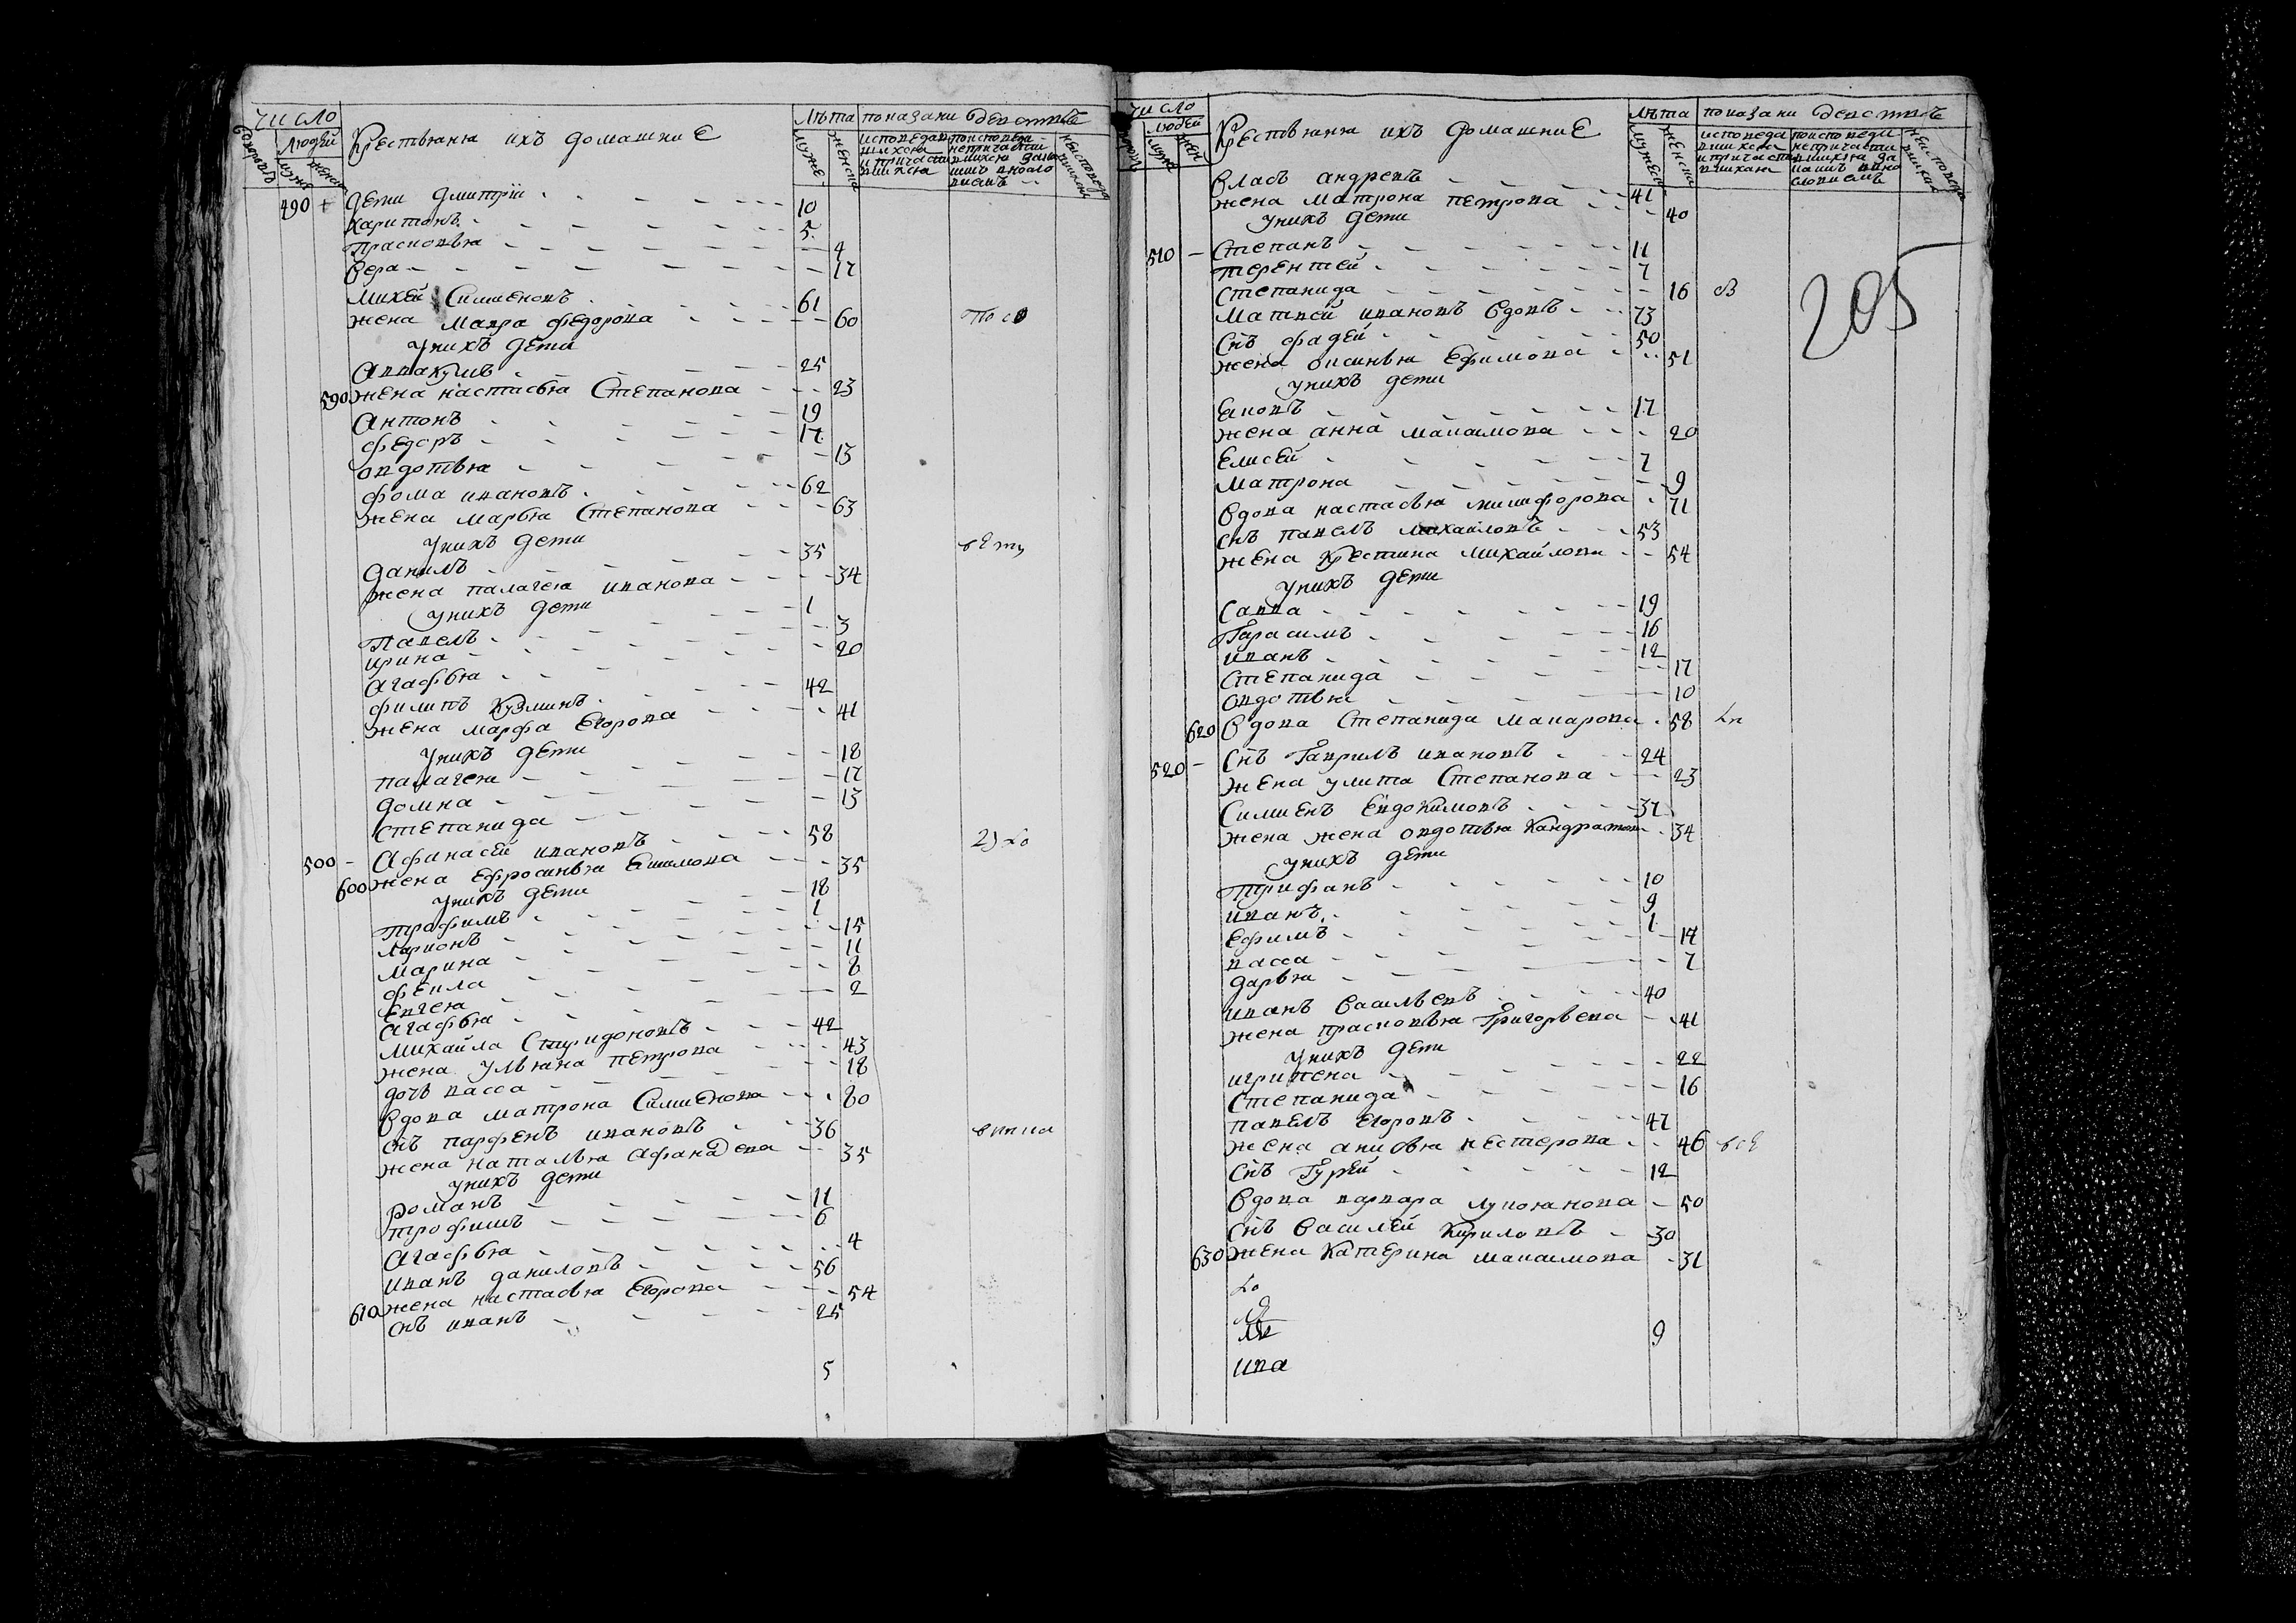 число
людей
Крестьяня ихъ домашние
лѣта
показани действъ
490 + дети дмитрїи 10
Харитонъ 5
Прасковья 4
Вера 17
Михей Симиеновъ 61
жена Мавра федорова 60
у нихъ дети
Аввакумъ 25
590 жена настасья Степанова 23
Антонъ 19
федоръ 17
овдотья 13
фома ивановъ 62
жена марья Степанова 63
у нихъ дети
Данилъ 35
жена палагея иванова 34
у нихъ дети
Павелъ 1
ирина 3
Агафья 20
филипъ Кузминъ 42
жена марфа Егорова 41
у нихъ дети
палагея 18
домна 17
степанида 13
500 - Афинасей ивановъ 58
600 жена Ефросинья 35
у нихъ дети
трафимъ 18
Ларионъ 1
Марина 15
фекла 11
Евгея 8
Агафья 2
михайла Спиридоновъ 42
жена ульяна петрова 43
дочь васса 18
вдова матрона Симиенова 80
снъ парфенъ ивановъ 36
жена наталья 35
у нихъ дети
романъ 11
трофимъ 6
Агафья 4
иванъ даниловъ 56
610 жена настасья Егорова 54
снъ иванъ 25
5
число
людей
Крестьяня ихъ домашние
лѣта
показани действъ
Власъ андревъ 41
жена матрона петрова 40
у нихъ дети
510 - Степанъ 11
терентей 7
степанида 16
Матвей ивановъ вдовъ 73
снъ фадей 50
жена Ефимова 51
у нихъ дети
17
жена анна макимова 20
Елисей 7
матрона 9
вдова настасья никифорова 71
снъ павелъ михайловъ 53
жена Крестина михайлова 54
у нихъ дети
Савва 19
Гарасимъ 16
иванъ 12
степанида 17
овдотья 10
620 вдова Степанида макарова 58
520 - снъ Гаврилъ ивановъ 24
жена улита Степанова 23
Симиенъ Евдокимовъ 37
жена жена овдотья 34
у нихъ дети
трифанъ 10
иванъ 9
Ефимъ 1
васса 17
дарья 7
иванъ васильевъ 40
жена прасковья Григорьева 41
у нихъ дети
22
Степанида 16
павелъ Егоровъ 47
жена нестерова 46
снъ Гурей 12
вдова варвара лукоянова 50
снъ василей Кириловъ 30
630 жена Катерина макимова 31
9
ива
205